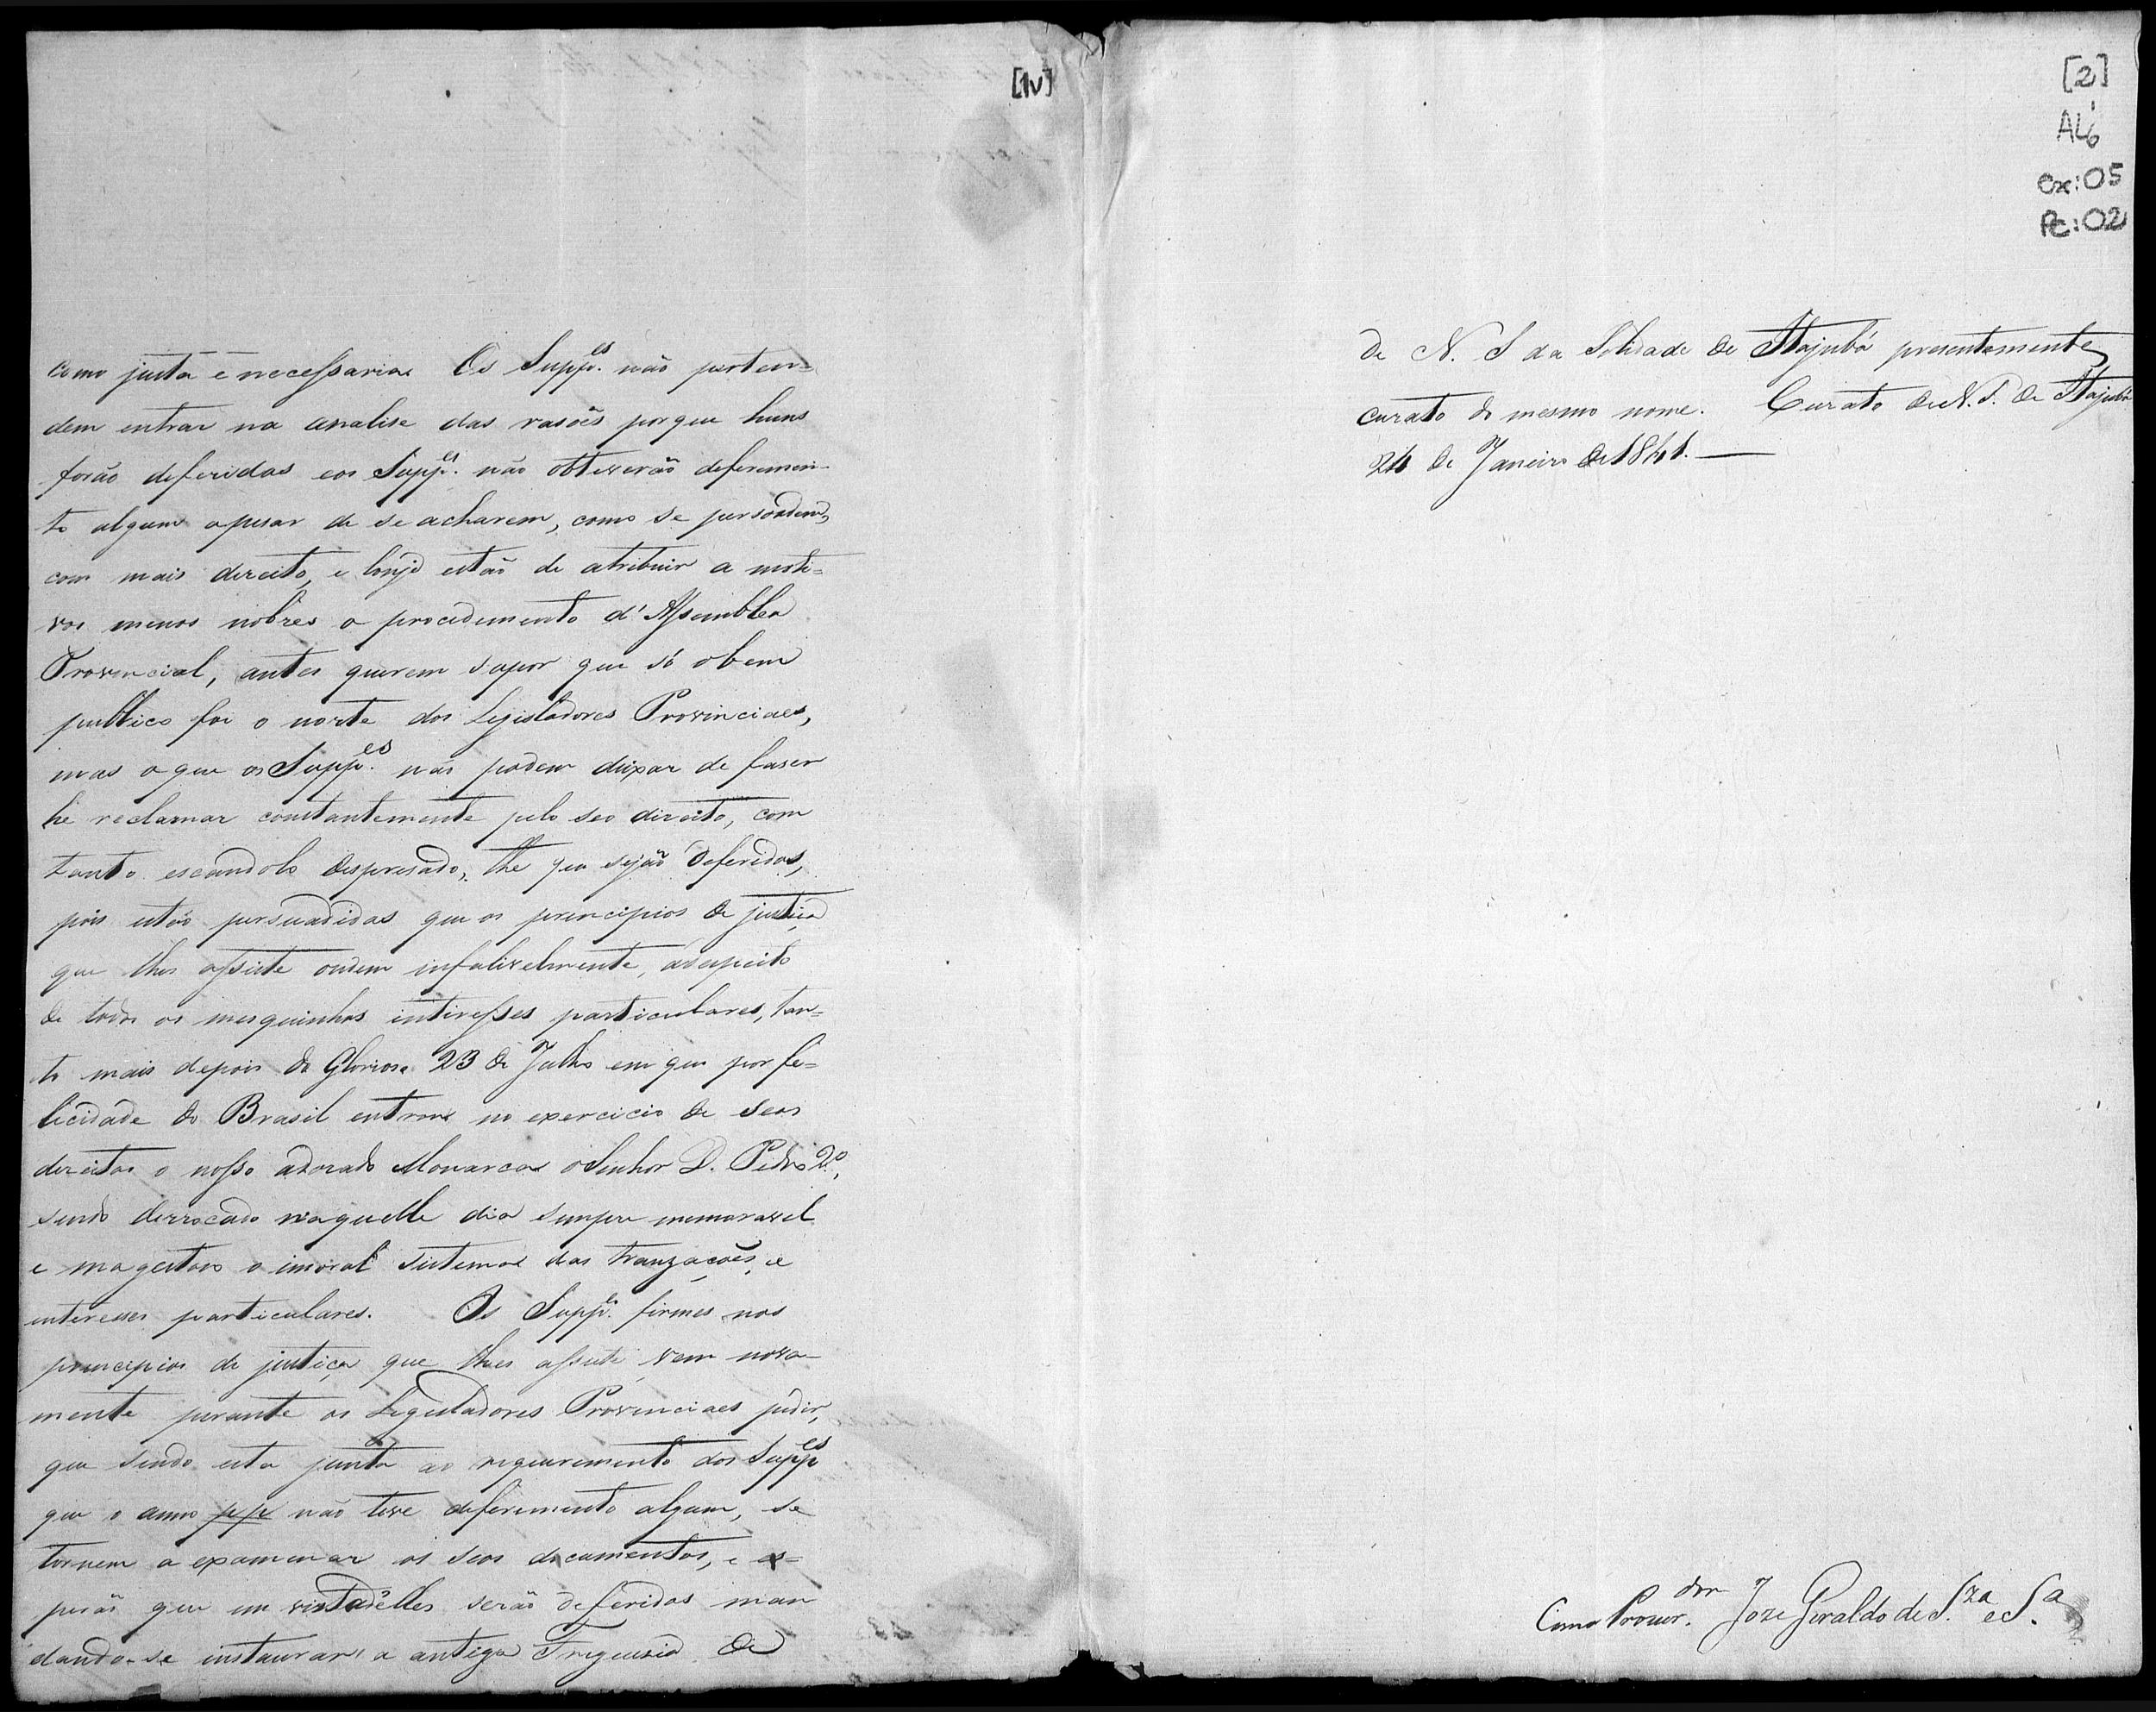 [1v]
como justa e necessaria Os Supp.es não perten=
dem entrar na analise das rasões porque huns
forão deferidos e os Supp.es não obteverão deferemen-
to algum apesar de se acharem, como se persoadem,
com mais direito, e longe estão de atribuir a moti=
vos menos nobres o procedemento d'Assemblea
Provincial, antes querem supor que só o bem
publico foi o norte dos Lejisladores Provinciaes,
mas o que os Supp.es não podem deixar de faser
he reclamar constantemente pelo seo direito, com
tanto escandolo despresado, the que sejão deferidos,
pois estão persuadidos que os principios de justiça
que lhes assiste ondem infalivelmente, adespeito
de todos os mesquinhos interesses particulares, tan=
to mais depois do Glorioso 23 de Julho em que por fe=
licidade do Brasil entrou no exercicio de seos
direitos o nosso adorado Monarca o Senhor D. Pedro 2.º,
sendo derrocado naquelle dia sempre memoravel
e magestoso o imoral sistema das tranzações, e
interesses particulares. Os Supp.es firmes nos
principios de justiça que lhes assiste, vem nova-
mente perante os Legisladores Provinciaes pedir,
que sendo esta junta ao requerimento dos Supp.es
que o anno pp. não teve deferemento algum, se
tornem a examenar os seos documentos, e es=
perão que em vista d'elles serão deferidos man
dando-se instaurar a antiga Freguesia de
[2]
AL6
Cx:05
Pc:02
de N. S da Solidade de Itajubá presentemente
curato do mesmo nome. Curato de N. S. de Itajubá
24 de Janeiro de 1841.
Como Procur.dor Joze Geraldo de S.za e S.a